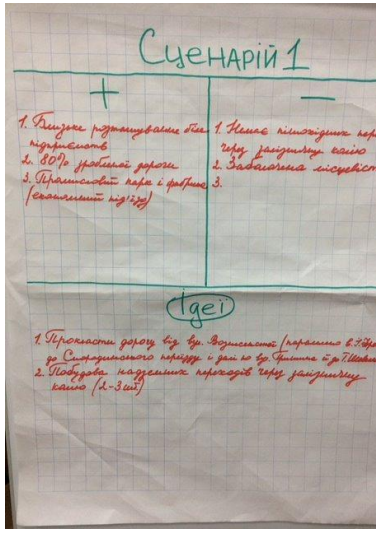 Сценарій 1
+
1. Близьке розташування біля
підприємств
2. 80% зробленої дороги
3. Промисловий парк і фабрика
(економний під'їзд)
−
1. Немає пішохідних пер
через залізничну колію
2. Заболочена місцевіст
3.
Ідеї
1. Прокласти дорогу від вул. Вознесенської
до Смородинського переїзду і далі по вул.
2. Побудова надземних переходів через залізничну
колію (2-3 шт)